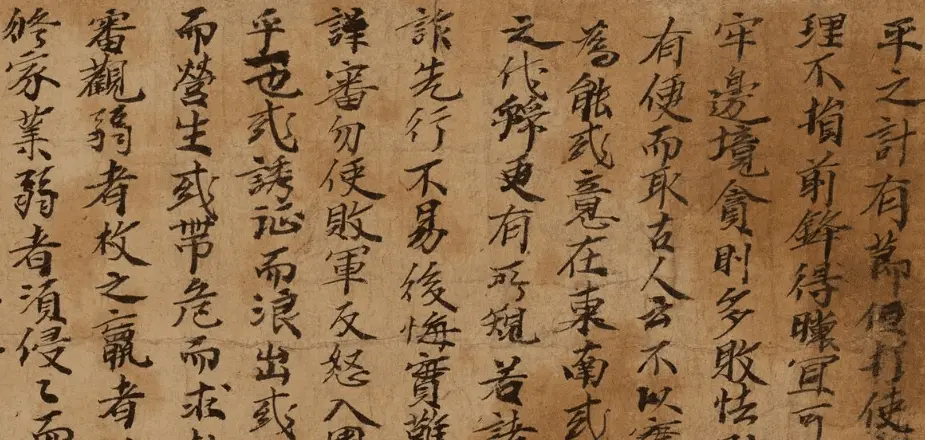 平之計有莭但打使
理不損前鋒得宜可
牢邊境貪則多敗怯
有便而取古人云不以
為能或意在東南或
之代辤更有所規若諸
詐先行不易後悔實難
謹審勿使敗軍反怒入
乎也或誘征而浪出或
而營生或帶危而求
審觀弱者枚之羸者
修家業弱者須侵〻而